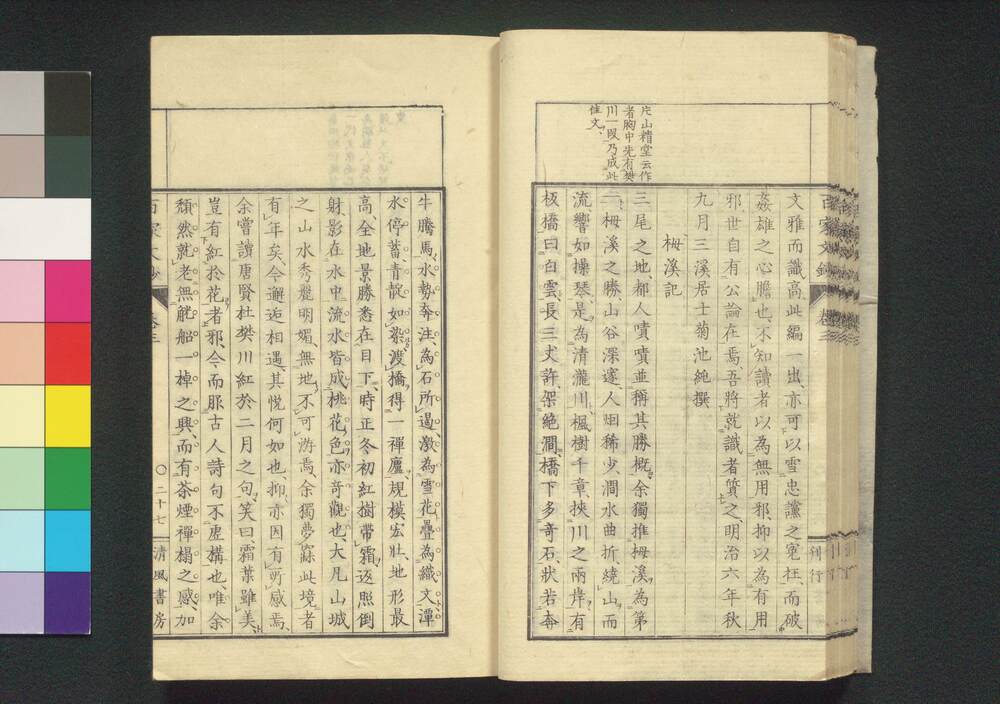 片山精堂云作
者胸中先有樊
川一段乃成此
佳文、
文雅而識高、此編一出、亦可以雪忠讜之寃枉、而破
姦雄之心膽也、不知讀者以為無用邪、抑以為有用
邪、世自有公論在焉、吾將就識者質之、明治六年秋
九月三溪居士菊池純撰
栂溪記
三尾之地、都人嘖嘖並稱其勝概、余獨推栂溪為第
一、栂溪之勝、山谷深邃、人烟稀少、澗水曲折、繞山而
流、響如操琴、是為清瀧川、楓樹千章、挾川之兩岸、有
板橋曰白雲、長三丈許、架絶澗、橋下多奇石、狀若奔
刊行
牛騰馬、水勢奔注、為石所遏、激為雪花、疊為織文、潭
水停蓄、青靛如染、渡橋得一禪廬、規模宏壯、地形最
高、全地景勝悉在目下、時正冬初、紅樹帶霜、返照倒
射、影在水中、流水皆成桃花色、亦奇觀也、大凡山城
之山水秀麗明媚、無地不可游焉、余獨夢寐此境者
有年矣、今邂逅相遇、其悦何如也、抑亦因有所感焉、
余嘗讀唐賢杜樊川紅於二月之句、笑曰、霜葉雖美、
豈有紅於花者邪、今而服古人詩句不虚構也、唯余
頽然就老、無觥船一棹之興、而有茶煙禪榻之感、加
二十七
清風書房